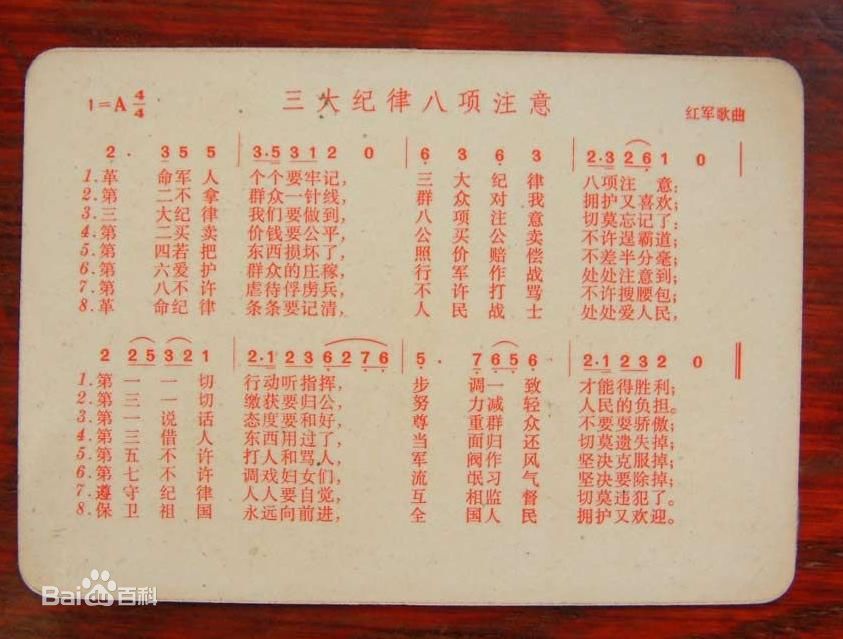 1=A 4/4
三大纪律八项注意
红军歌曲
2. 3 5 5 | 3·5 3 1 2 0 | 6. 3 6. 3 | 2·3 2 6. 1 0 |
1.革命军人个个要牢记，三大纪律八项注意：
2.第二不拿群众一针线，群众对我拥护又喜欢；
3.三大纪律我们要做到，八项注意切莫忘记了：
4.第二买卖价钱要公平，公买公卖不许逞霸道；
5.第四若把东西损坏了，照价赔偿不差半分毫；
6.第六爱护群众的庄稼，行军作战处处注意到；
7.第八不许虐待俘虏兵，不许打骂不许搜腰包；
8.革命纪律条条要记清，人民战士处处爱人民，
2 2 5 3 2 1 | 2·1 2 3 6 2 7 6 | 5. 7 6 5 6 | 2·1 2 3 2 0 ‖
1.第一一切行动听指挥，步调一致才能得胜利；
2.第三一切缴获要归公，努力减轻人民的负担。
3.第一说话态度要和好，尊重群众不要耍骄傲；
4.第三借人东西用过了，当面归还切莫遗失掉；
5.第五不许打人和骂人，军阀作风坚决克服掉；
6.第七不许调戏妇女们，流氓习气坚决要除掉；
7.遵守纪律人人要自觉，互相监督切莫违犯了。
8.保卫祖国永远向前进，全国人民拥护又欢迎。
Bai du 百科